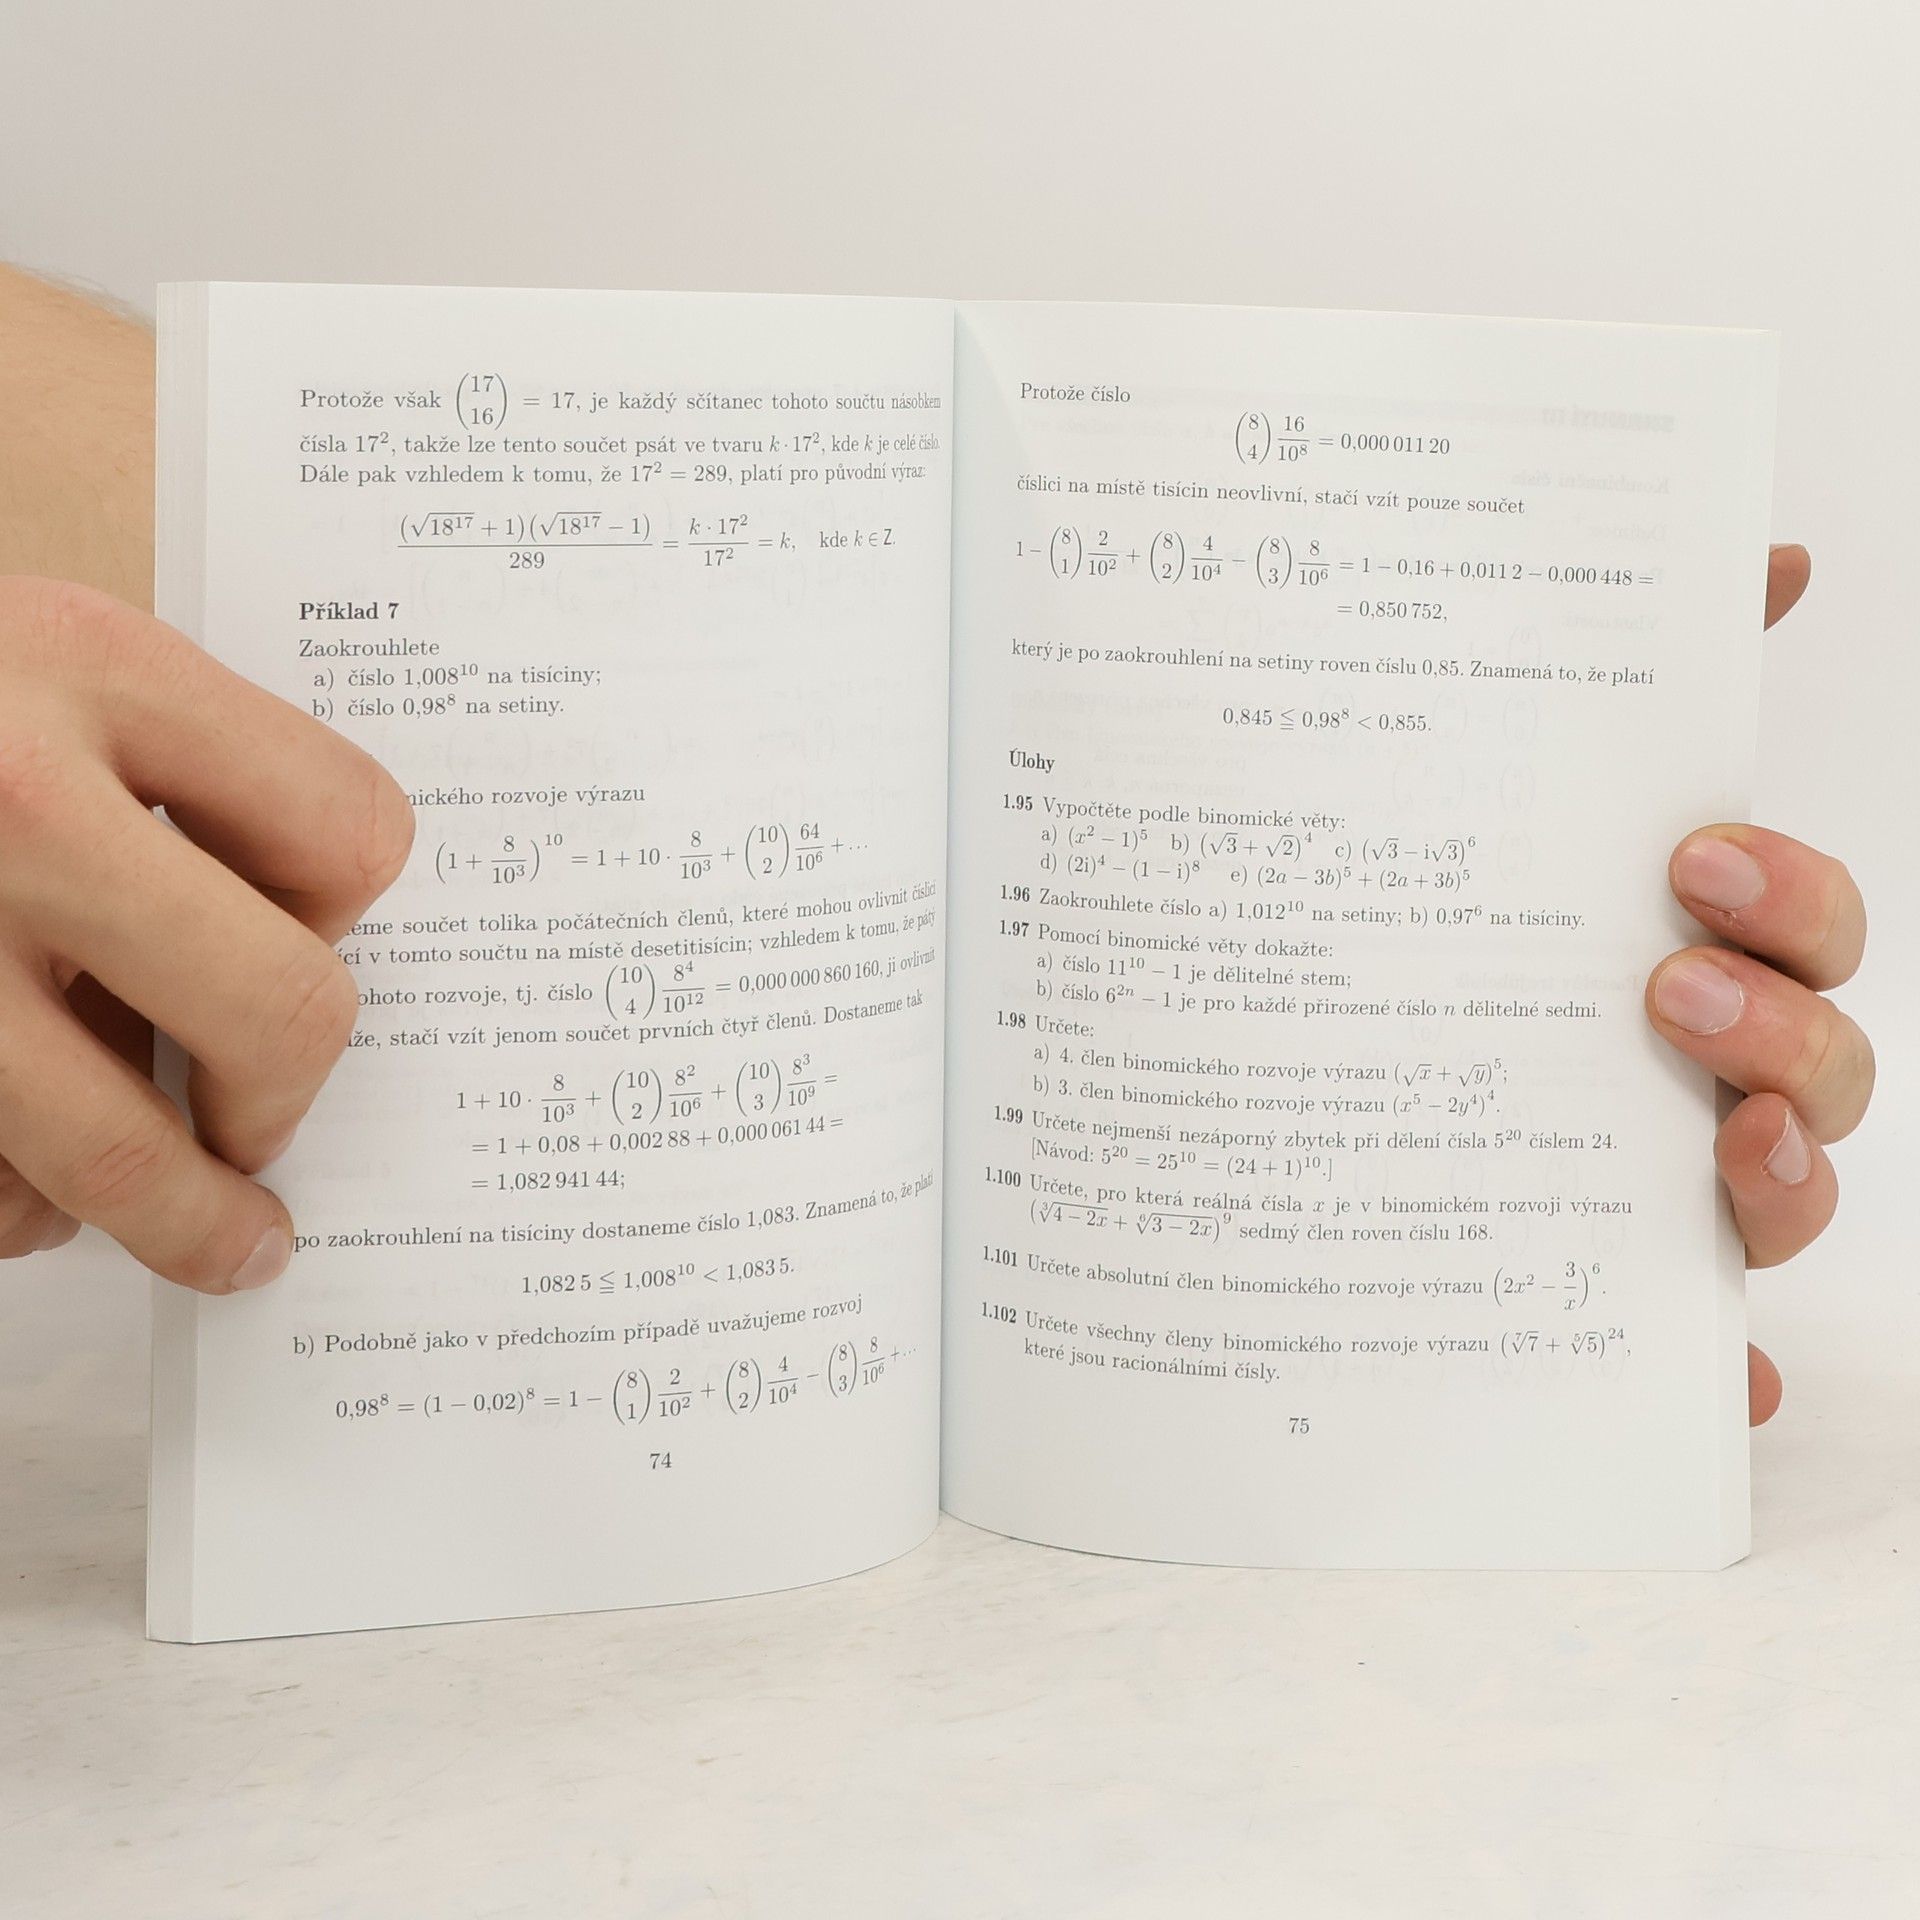 Protože však (17 16) = 17, je každý sčítanec tohoto součtu násobkem
čísla 17², takže lze tento součet psát ve tvaru k · 17², kde k je celé číslo.
Dále pak vzhledem k tomu, že 17² = 289, platí pro původní výraz:
(√18¹⁷ + 1)(√18¹⁷ − 1) / 289 = k · 17² / 17² = k, kde k ∈ Z.
Příklad 7
Zaokrouhlete
a) číslo 1,008¹⁰ na tisíciny;
b) číslo 0,98⁸ na setiny.
rozvoje výrazu
(1 + 8/10³)¹⁰ = 1 + 10 · 8/10³ + (10 2) 64/10⁶ + …
součet tolika počátečních členů, které mohou ovlivnit číslici
v tomto součtu na místě desetitisícin; vzhledem k tomu, že pátý
rozvoje, tj. číslo (10 4) 8⁴/10¹² = 0,000 000 860 160, ji ovlivnit
stačí vzít jenom součet prvních čtyř členů. Dostaneme tak
1 + 10 · 8/10³ + (10 2) 8²/10⁶ + (10 3) 8³/10⁹ =
= 1 + 0,08 + 0,002 88 + 0,000 061 44 =
= 1,082 941 44;
po zaokrouhlení na tisíciny dostaneme číslo 1,083. Znamená to, že platí
1,082 5 ≦ 1,008¹⁰ < 1,083 5.
b) Podobně jako v předchozím případě uvažujeme rozvoj
0,98⁸ = (1 − 0,02)⁸ = 1 − (8 1) 2/10² + (8 2) 4/10⁴ − (8 3) 8/10⁶ + …
74
Protože číslo
(8 4) 16/10⁸ = 0,000 011 20
číslici na místě tisícin neovlivní, stačí vzít pouze součet
1 − (8 1) 2/10² + (8 2) 4/10⁴ − (8 3) 8/10⁶ = 1 − 0,16 + 0,011 2 − 0,000 448 =
= 0,850 752,
který je po zaokrouhlení na setiny roven číslu 0,85. Znamená to, že platí
0,845 ≦ 0,98⁸ < 0,855.
Úlohy
1.95 Vypočtěte podle binomické věty:
a) (x² − 1)⁵ b) (√3 + √2)⁴ c) (√3 − i√3)⁶
d) (2i)⁴ − (1 − i)⁸ e) (2a − 3b)⁵ + (2a + 3b)⁵
1.96 Zaokrouhlete číslo a) 1,012¹⁰ na setiny; b) 0,97⁶ na tisíciny.
1.97 Pomocí binomické věty dokažte:
a) číslo 11¹⁰ − 1 je dělitelné stem;
b) číslo 6²ⁿ − 1 je pro každé přirozené číslo n dělitelné sedmi.
1.98 Určete:
a) 4. člen binomického rozvoje výrazu (√x + √y)⁵;
b) 3. člen binomického rozvoje výrazu (x⁵ − 2y⁴)⁴.
1.99 Určete nejmenší nezáporný zbytek při dělení čísla 5²⁰ číslem 24.
[Návod: 5²⁰ = 25¹⁰ = (24 + 1)¹⁰.]
1.100 Určete, pro která reálná čísla x je v binomickém rozvoji výrazu
(∛4 − 2x + ⁶√3 − 2x)⁹ sedmý člen roven číslu 168.
1.101 Určete absolutní člen binomického rozvoje výrazu (2x² − 3/x)⁶.
1.102 Určete všechny členy binomického rozvoje výrazu (⁷√7 + ⁵√5)²⁴,
které jsou racionálními čísly.
75